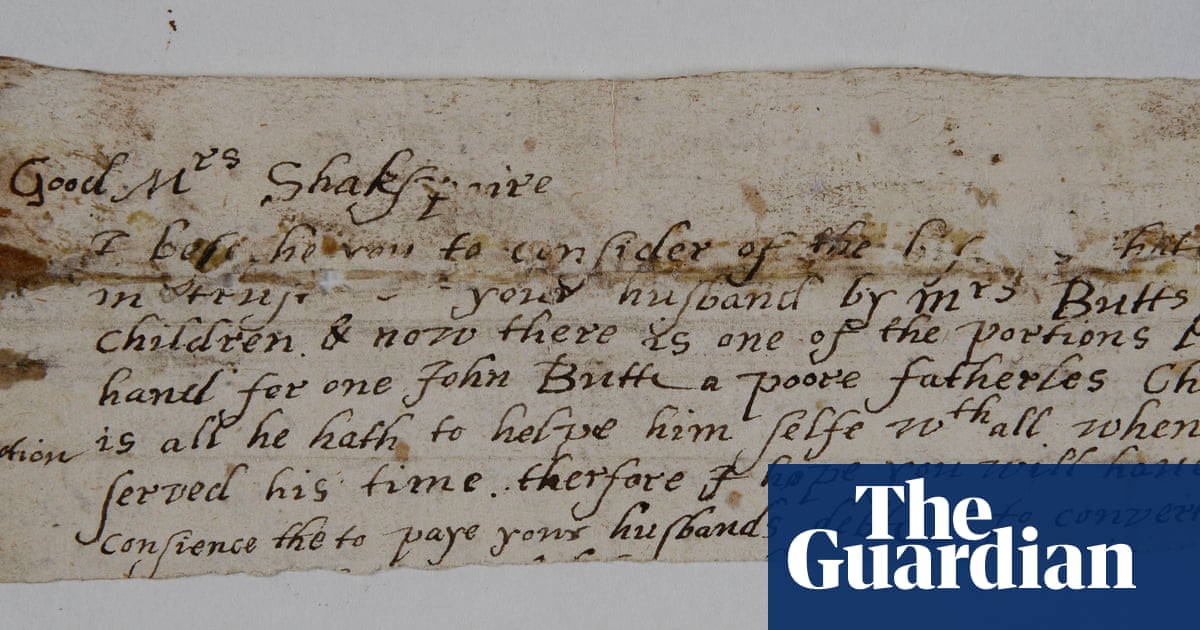 Good Mrs Shakspaire
I you to consider of the
in your husband by Mrs Butts
children. & now there is one of the portions
hand for one John Butte a poore fatherles Ch
ction is all he hath to helpe him selfe wth all when
served his time. therfore I hope you will have
Consience the to paye your husbands to conver
The
Guardian